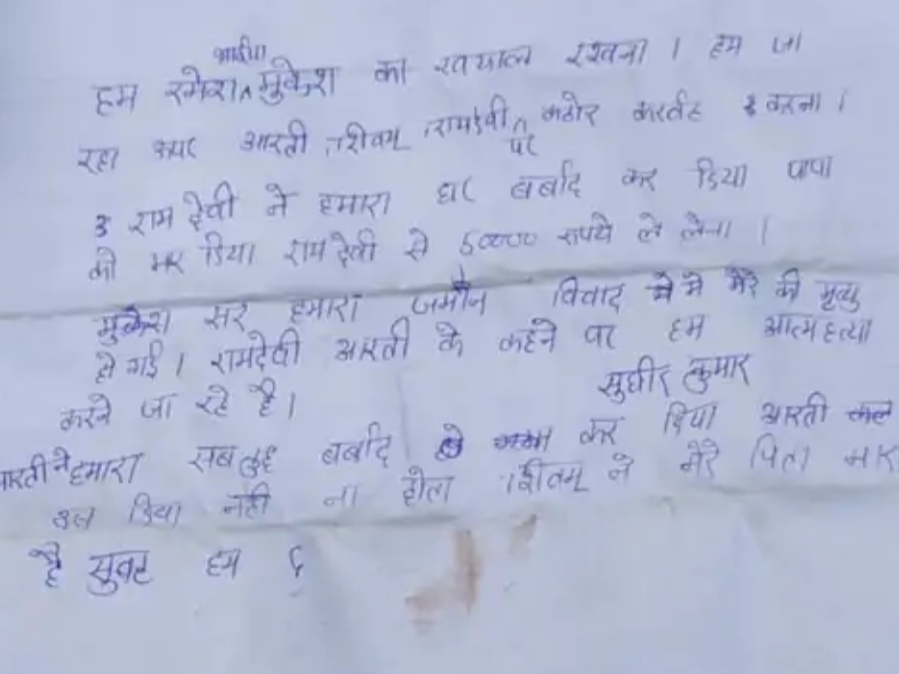 भाईया
हम रमेश मुकेश का खयाल रखना । हम जा
रहा आरती, शिवम्, रामदेवी पर कठोर करना ।
राम देवी ने हमारा घर बर्बाद कर दिया पापा
को मार दिया राम देवी से 50000 रुपये ले लेना ।
मुकेश सर हमारा जमीन विवाद मे मेरे की मृत्यु
हो गई । रामदेवी आरती के कहने पर हम आत्महत्या
करने जा रहे है ।
सुधीर कुमार
आरती ने हमारा सबकुछ बर्बाद कर दिया आरती कल
दिया नही ना होता शिवम् ने मेरे पिता मार
है सुबह हम 6